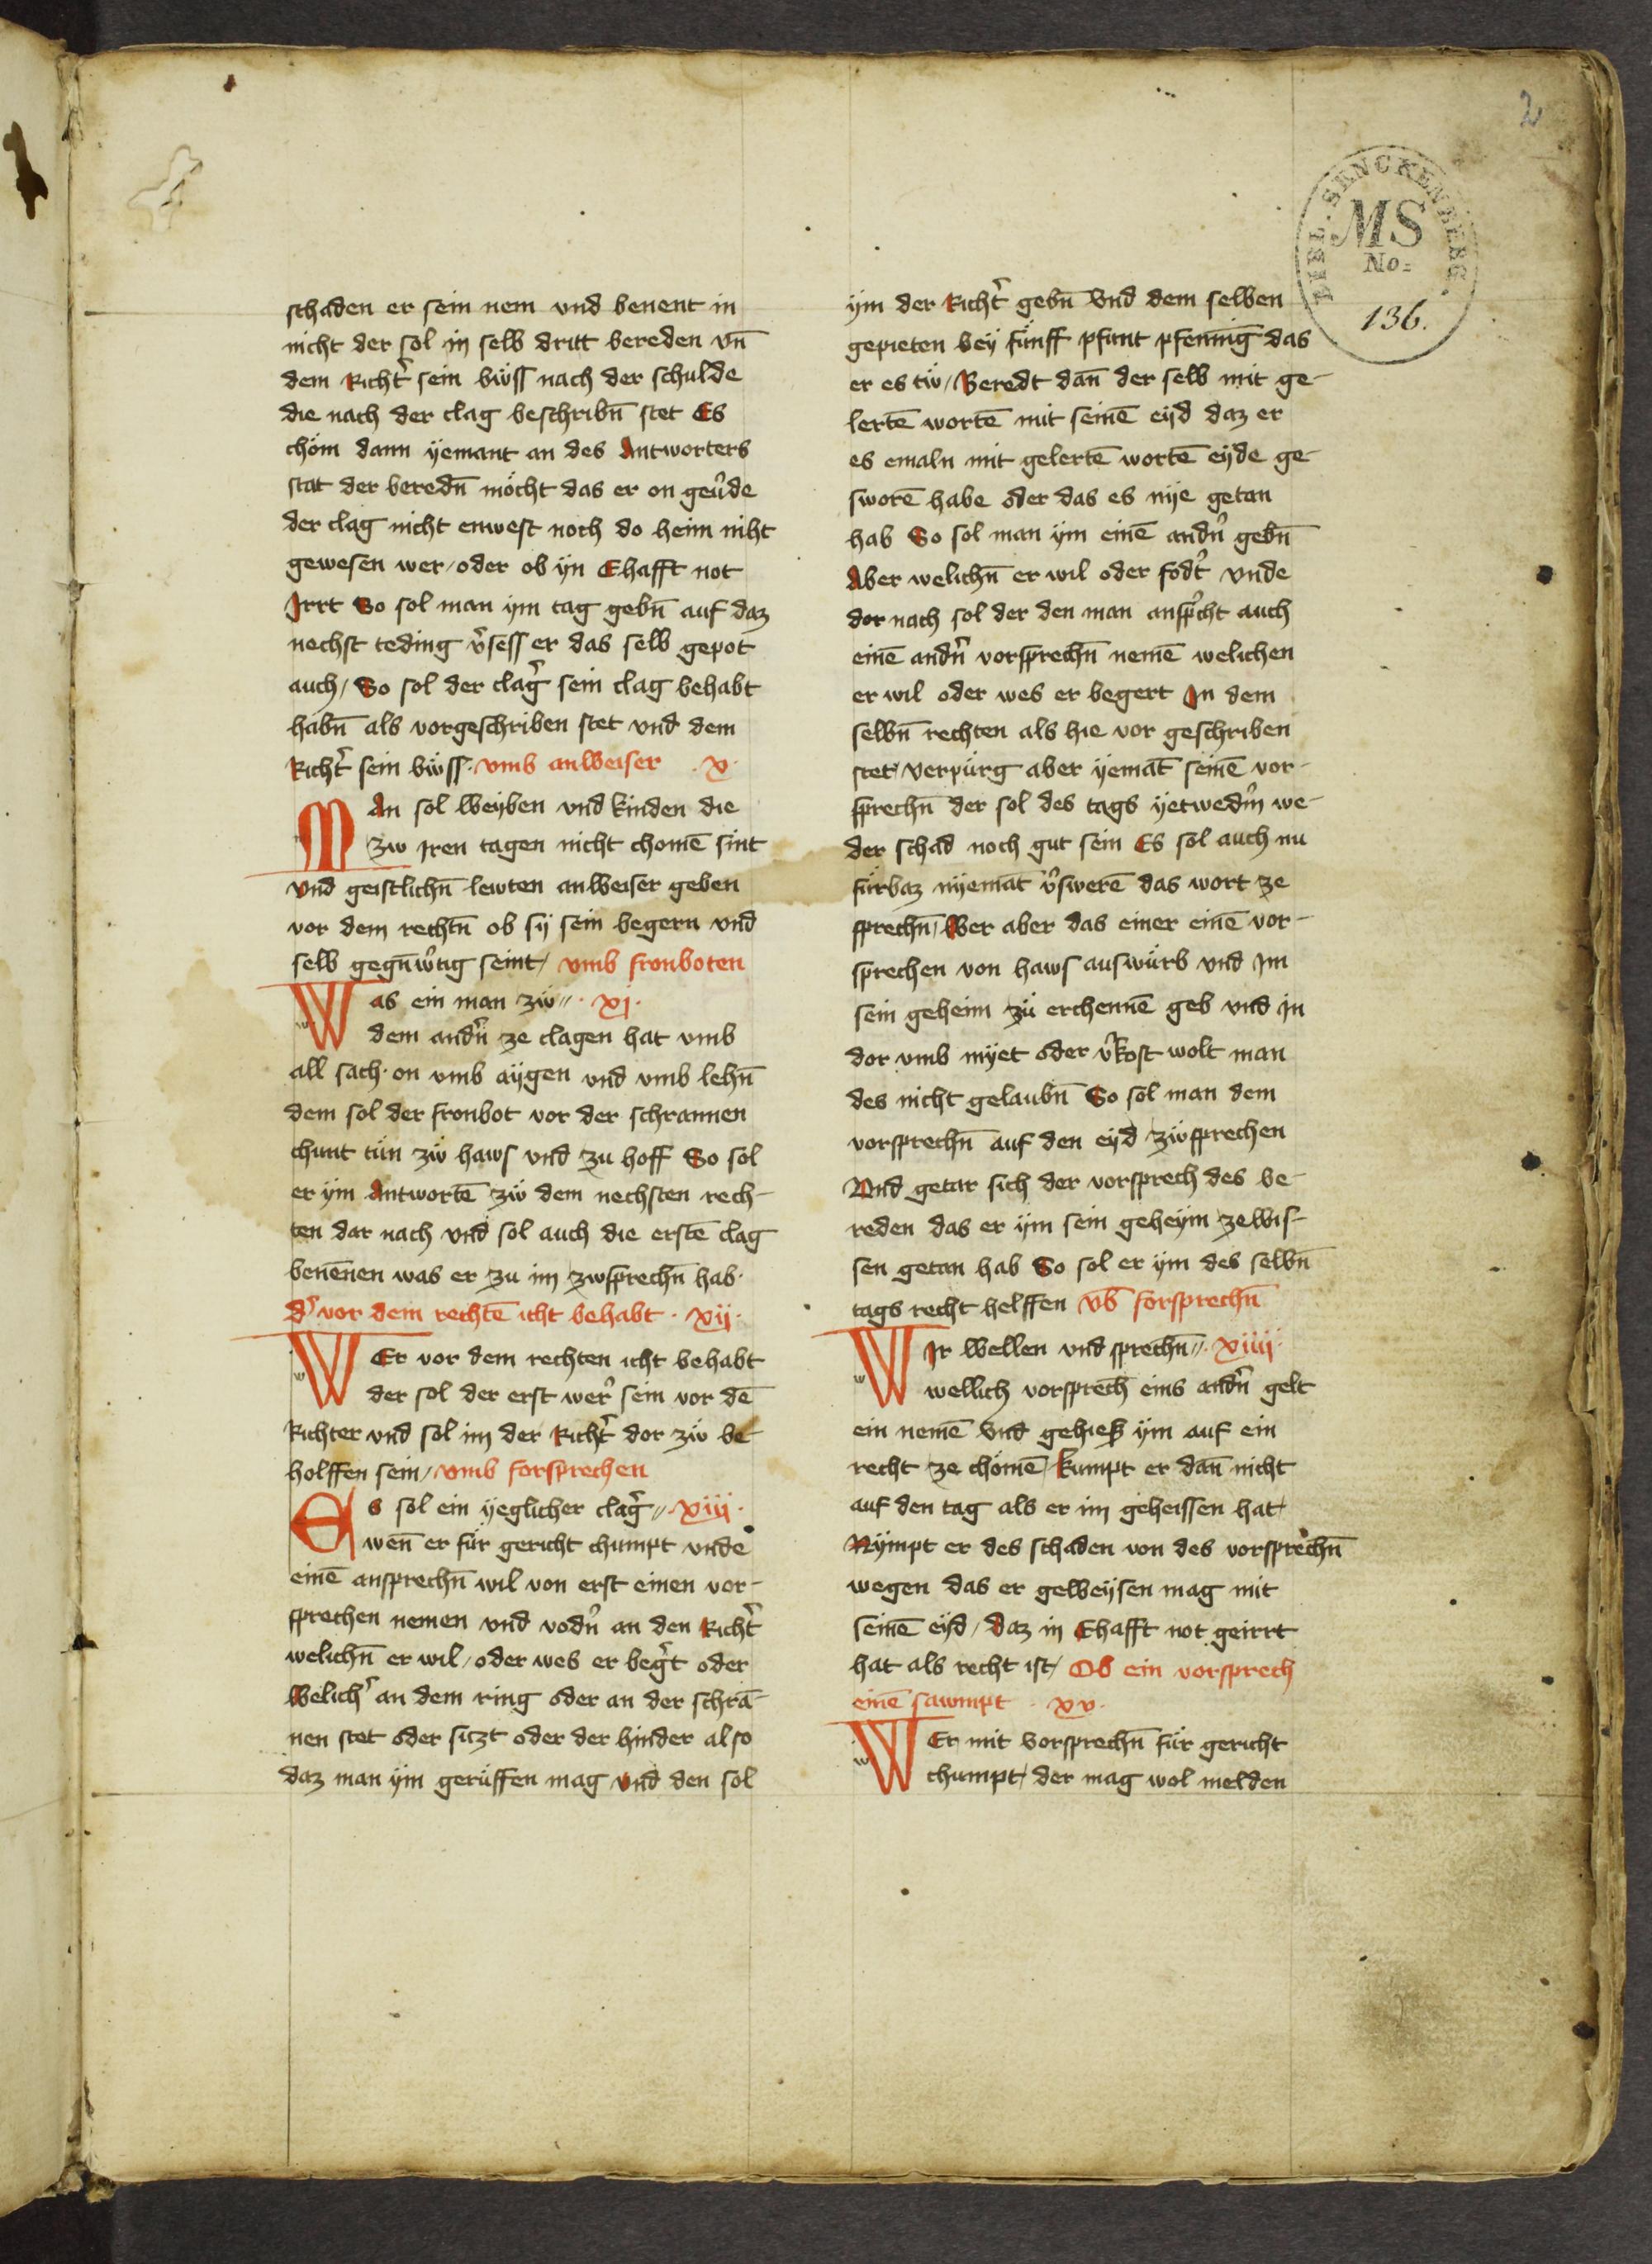 2
BIBL. SENCKENBERG.
MS
No.
136.
schaden er sein nem vnd benent in
nicht der sol in selb dritt bereden vn̄
dem Richt̉ sein bẅss nach der schulde
die nach der clag beschribn̄ stet Es
chöm dann yemant an des Antworters
stat der beredn̄ möcht das er on geu̓de
der clag nicht enwest noch do heim niht
gewesen wer / oder ob yn Ehafft not
Irrt So sol man ym tag gebn̄ auf daz
nechst teding v̓sess er das selb gepot
auch / So sol der clag̉ sein clag behabt
habn̄ als vorgeschriben stet vnd dem
Richt̉ sein bẅss · vmb anweiser · x ·
MAn sol weyben vnd kinden die
zw Iren tagen nicht chomē sint
vnd geistlichn̄ lewten anweiser geben
vor dem rechtn̄ ob sy sein begern vnd
selb gegn̄w̓tig seint / vmb fronboten
Was ein man zẅ · xj ·
dem andn̓ ze clagen hat vmb
all sach · on vmb aygen vnd vmb lehn̄
dem sol der fronbot vor der schrannen
chunt tün zẅ haws vnd zu hoff So sol
er ym Antwortē zẅ dem nechsten rech-
ten dar nach vnd sol auch die erstē clag
benēnen was er zu im zwsprechn̄ hab ·
d̓ vor dem rechtē icht behabt · xij ·
WEr vor dem rechten icht behabt
der sol der erst wer̓ sein vor dē
Richter vnd sol im der Richt̉ dor zẅ be-
holffen sein / vmb forsprechen
Es sol ein yeglicher clag̉ · xiij ·
wen̄ er für gericht chumpt vnde
einē ansprechn̄ wil von erst einen vor-
sprechen nemen vnd vodn̓ an den Richt̉
welichn̄ er wil / oder wes er beg̉t oder
Welich̉ an dem ring oder an der schrā-
nen stet oder siczt oder der hinder also
daz man ym gerüffen mag vnd den sol
ym der Richt̉ gebn̄ Vnd dem selben
gepieten bey fünff pfunt pfennig das
er es tẅ / Beredt dan̄ der selb mit ge-
lertē wortē mit seinē eyd daz er
es emaln mit gelertē wortē eyde ge-
sworē habe oder das es nye getan
hab So sol man ym einē andn̓ gebn̄
Aber welichn̄ er wil oder fodt̓ vnde
dor nach sol der den man anspͥcht auch
einē andn̓ vorsprechn̄ nemē welichen
er wil oder wes er begert In dem
selbn̄ rechten als hie vor geschriben
stet / Verpürg aber yemāt seinē vor-
sprechn̄ der sol des tags yetwedm̓ we-
der schad noch gut sein Es sol auch nu
fürbaz nyemāt v̓swerē das wort ze
sprechn̄ / Wer aber das einer einē vor-
sprechen von haws auswürb vnd Im
sein geheim zü erchennē geb vnd In
dor vmb myet oder v̓kost wolt man
des nicht gelaubn̄ So sol man dem
vorsprechn̄ auf den eyd zẅsprechen
Vnd getar sich der vorsprech des be-
reden das er ym sein geheym zewis-
sen getan hab So sol er ym des selbn̄
tags recht helffen vb̄ forsprechn̄
WIr wellen vnd sprechn̄ · xiiij ·
wellich vorsprech eins andn̓ gelt
ein nemē Vnd gehiess ym auf ein
recht ze chömē / kumpt er dan̄ nicht
auf den tag als er im geheissen hat /
Nympt er des schaden von des vorsprechn̄
wegen das er geweysen mag mit
seinē eyd / daz in Ehafft not geirrt
hat als recht ist / Ob ein vorsprech
einē sawmpt · xv ·
WEr mit Vorsprechn̄ für gericht
chumpt / der mag wol melden